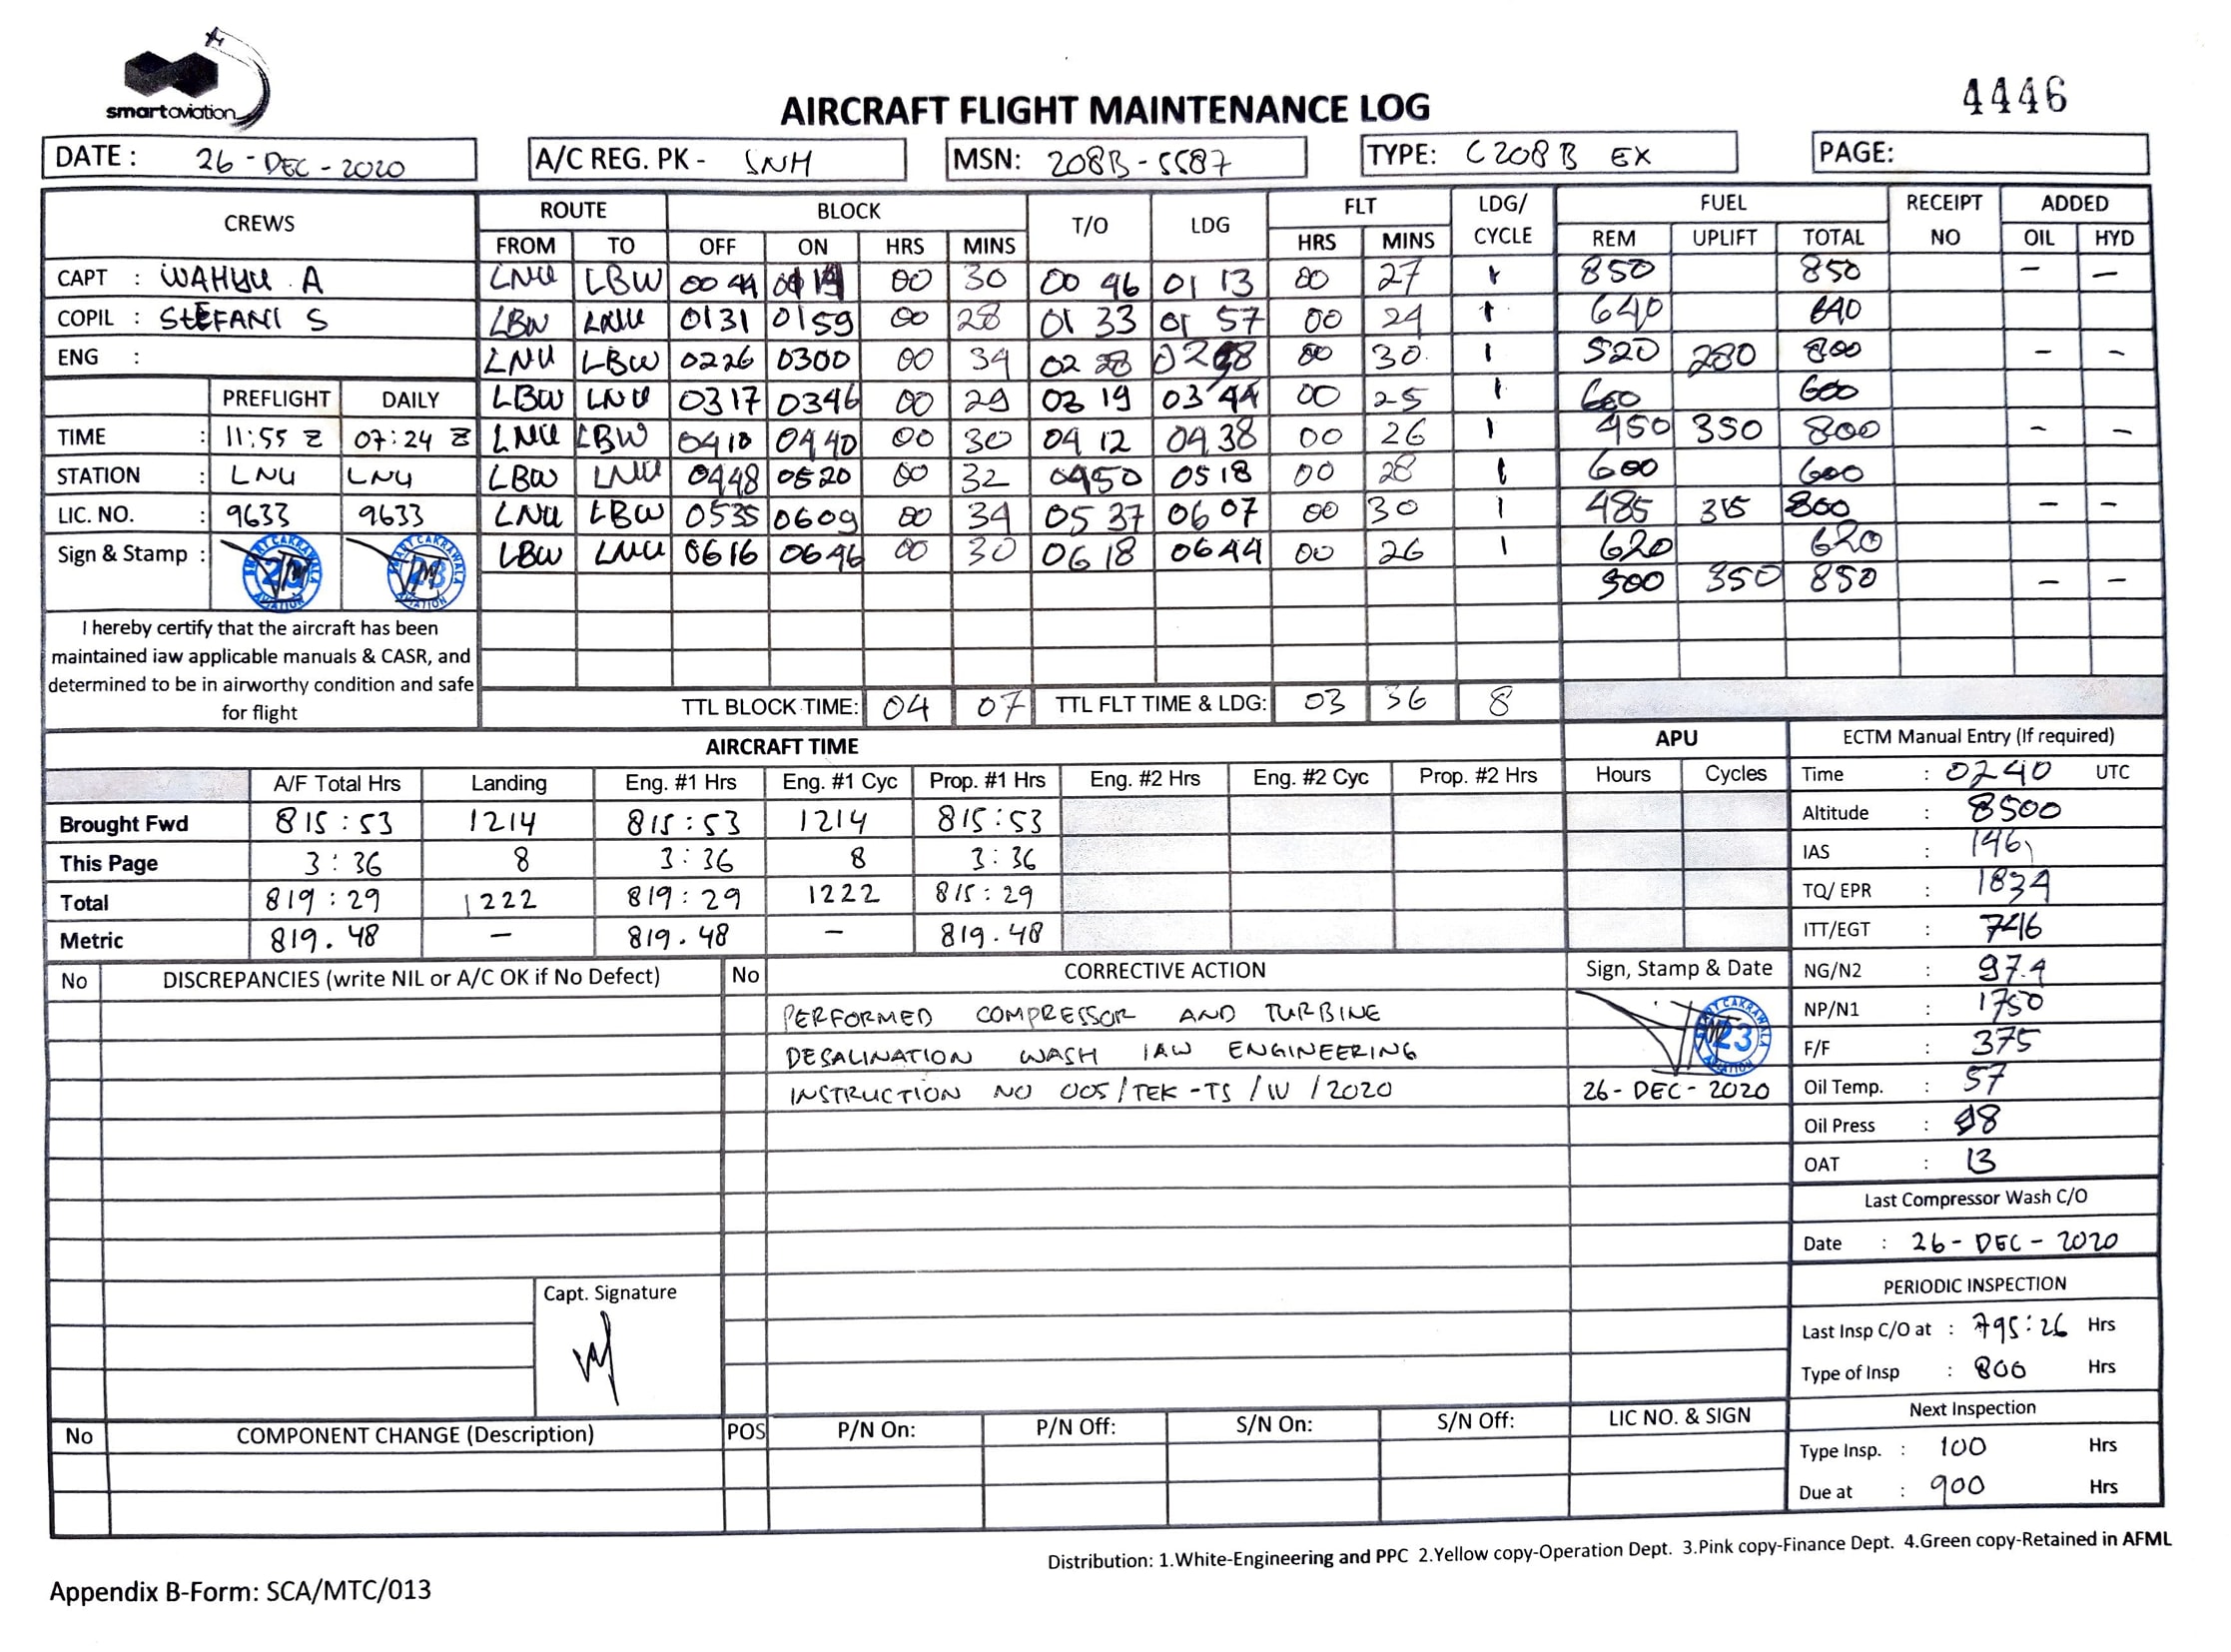 smartaviation
4446
AIRCRAFT FLIGHT MAINTENANCE LOG
DATE : 26 - DEC - 2020 A/C REG. PK - SNH MSN: 208B-5587 TYPE: C208B EX PAGE:
CREWS ROUTE BLOCK T/O LDG FLT LDG/ CYCLE FUEL RECEIPT NO ADDED
FROM TO OFF ON HRS MINS HRS MINS REM UPLIFT TOTAL OIL HYD
CAPT : WAHYU A LNU LBW 0044 00 30 00 46 01 13 00 27 1 850 850 – –
COPIL : STEFANI S LBW LNU 0131 0159 00 28 01 33 01 57 00 24 1 640 640
ENG : LNU LBW 0226 0300 00 34 02 28 00 30 1 520 280 800 – –
PREFLIGHT DAILY LBW LNU 0317 0346 00 29 03 19 03 44 00 25 1 600 600
TIME : 11:55 Z 07:24 Z LNU LBW 0410 0440 00 30 04 12 04 38 00 26 1 450 350 800 – –
STATION : LNU LNU LBW LNU 0448 0520 00 32 0450 0518 00 28 1 600 600
LIC. NO. : 9633 9633 LNU LBW 0535 0609 00 34 05 37 06 07 00 30 1 485 315 800 – –
Sign & Stamp : LBW LNU 0616 0646 00 30 0618 0644 00 26 1 620 620
500 350 850 – –
I hereby certify that the aircraft has been
maintained iaw applicable manuals & CASR, and
determined to be in airworthy condition and safe
for flight
TTL BLOCK TIME: 04 07 TTL FLT TIME & LDG: 03 36 8
AIRCRAFT TIME APU ECTM Manual Entry (If required)
A/F Total Hrs Landing Eng. #1 Hrs Eng. #1 Cyc Prop. #1 Hrs Eng. #2 Hrs Eng. #2 Cyc Prop. #2 Hrs Hours Cycles Time : 0240 UTC
Brought Fwd 815:53 1214 815:53 1214 815:53 Altitude : 8500
This Page 3:36 8 3:36 8 3:36 IAS : 146
Total 819:29 1222 819:29 1222 815:29 TQ/ EPR : 1834
Metric 819.48 – 819.48 – 819.48 ITT/EGT : 746
No DISCREPANCIES (write NIL or A/C OK if No Defect) No CORRECTIVE ACTION Sign, Stamp & Date NG/N2 : 97.4
PERFORMED COMPRESSOR AND TURBINE NP/N1 : 1750
DESALINATION WASH IAW ENGINEERING F/F : 375
INSTRUCTION NO 005/TEK-TS/IV/2020 26-DEC-2020 Oil Temp. : 57
Oil Press : 98
OAT : 13
Last Compressor Wash C/O
Date : 26 - DEC - 2020
PERIODIC INSPECTION
Capt. Signature
Last Insp C/O at : 795:26 Hrs
Type of Insp : 800 Hrs
No COMPONENT CHANGE (Description) POS P/N On: P/N Off: S/N On: S/N Off: LIC NO. & SIGN Next Inspection
Type Insp. : 100 Hrs
Due at : 900 Hrs
Distribution: 1.White-Engineering and PPC 2.Yellow copy-Operation Dept. 3.Pink copy-Finance Dept. 4.Green copy-Retained in AFML
Appendix B-Form: SCA/MTC/013